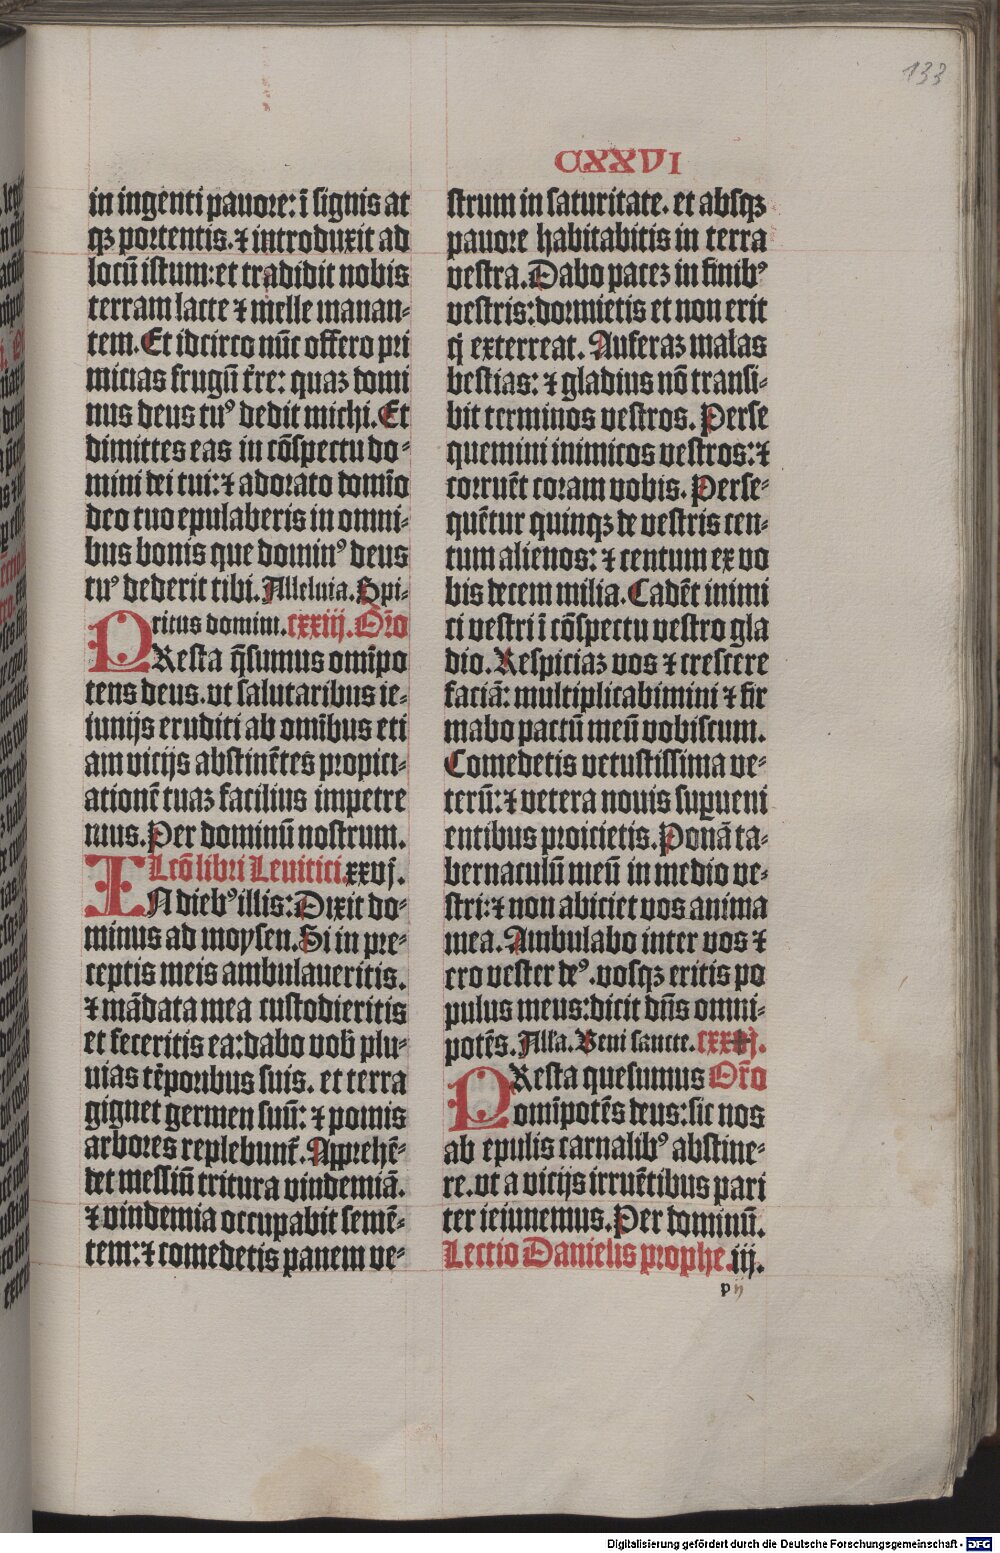 133
CXXVI
in ingenti pauore: ī signis at
qꝫ portentis. ⁊ introduxit ad
locū istum: et tradidit nobis
terram lacte ⁊ melle manan⸗
tem. Et idcirco nūc offero pri
micias frugū t̄re: quaꝫ domi
nus deus tuꝰ dedit michi. Et
dimittes eas in cōspectu do⸗
mini dei tui: ⁊ adorato domīo
deo tuo epulaberis in omni⸗
bus bonis que dominꝰ deus
tuꝰ dederit tibi. Alleluia. Spi⸗
ritus domini. cxxiij. Or̄o
PResta q̄sumus omīpo
tens deus. vt salutaribus ie⸗
iunijs eruditi ab omībus eti
am vicijs abstinētes propici⸗
ationē tuaꝫ facilius impetre
mus. Per dominū nostrum.
Lcō libri Leuitici. xxvj.
IN diebꝰ illis: Dixit do⸗
minus ad moysen. Si in pre⸗
ceptis meis ambulaueritis.
⁊ mādata mea custodieritis
et feceritis ea: dabo vob̄ plu⸗
uias tēporibus suis. et terra
gignet germen suū: ⁊ pomis
arbores replebunt̄. Apprehē⸗
det messiū tritura vindemiā.
⁊ vindemia occupabit semē⸗
tem: ⁊ comedetis panem ve⸗
strum in saturitate. et absqꝫ
pauore habitabitis in terra
vestra. Dabo paceꝫ in finibꝰ
vestris: dormietis et non erit
q̄ exterreat. Auferaꝫ malas
bestias: ⁊ gladius nō transi⸗
bit terminos vestros. Perse
quemini inimicos vestros: ⁊
corruēt coram vobis. Perse⸗
quētur quinqꝫ de vestris cen⸗
tum alienos: ⁊ centum ex vo
bis decem milia. Cadēt inimi
ci vestri ī cōspectu vestro gla
dio. Respiciaꝫ vos ⁊ crescere
faciā: multiplicabimini ⁊ fir
mabo pactū meū vobiscum.
Comedetis vetustissima ve⸗
terū: ⁊ vetera nouis supueni
entibus proicietis. Ponā ta⸗
bernaculū meū in medio ve⸗
stri: ⁊ non abiciet vos anima
mea. Ambulabo inter vos ⁊
ero vester deꝰ. vosqꝫ eritis po
pulus meus: dicit dn̄s omni⸗
potēs. Alla. Veni sancte.
PResta quesumus Or̄o
omīpotēs deus: sic nos
ab epulis carnalibꝰ abstine⸗
re. vt a vicijs irruētibus pari
ter ieiunemus. Per dominū.
Lectio Danielis prophe. iij.
p ij
Digitalisierung gefördert durch die Deutsche Forschungsgemeinschaft - DFG